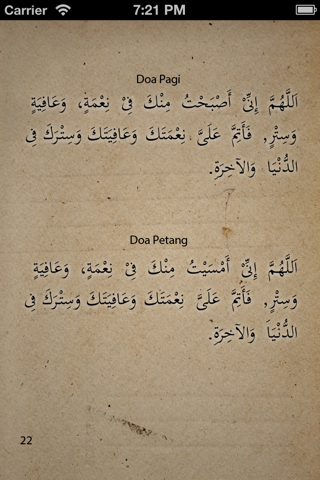 Carrier 7:21 PM
Doa Pagi
اَللَّهُمَّ إِنِّيْ أَصْبَحْتُ مِنْكَ فِيْ نِعْمَةٍ، وَعَافِيَةٍ
وَسِتْرٍ, فَأَتِمَّ عَلَيَّ نِعْمَتَكَ وَعَافِيَتَكَ وَسِتْرَكَ فِى
الدُّنْيَا وَالآخِرَةِ.
Doa Petang
اَللَّهُمَّ إِنِّيْ أَمْسَيْتُ مِنْكَ فِيْ نِعْمَةٍ، وَعَافِيَةٍ
وَسِتْرٍ, فَأَتِمَّ عَلَيَّ نِعْمَتَكَ وَعَافِيَتَكَ وَسِتْرَكَ فِى
الدُّنْيَا وَالآخِرَةِ.
22